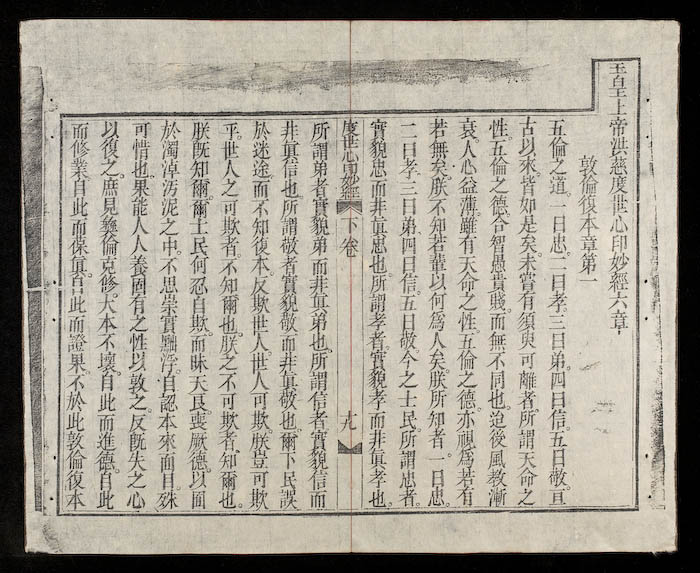 玉皇上帝洪慈度世心印妙經六章
敦倫復本章第一
五倫之道一曰忠。二曰孝。三曰弟。四曰信。五曰敬。亘
古以來。皆如是矣。未嘗有須臾可離者。所謂天命之
性。五倫之德。合智愚貴賤。而無不同也。迨後風教漸
衰。人心益薄。雖有天命之性。五倫之德。亦視為若有
若無矣。朕不知若輩以何為人矣。朕所知者。一曰忠。
二曰孝。三曰弟。四曰信。五曰敬。今之士民所謂忠者。
實貌忠而非眞忠也。所謂孝者。實貌孝而非眞孝也。
度世心印妙經 下卷 十九
所謂弟者實貌弟而非眞弟也。所謂信者。實貌信而
非眞信也。所謂敬者。實貌敬而非眞敬也。爾下民誤
於迷途。而不知復本。反欺世人。世人可欺。朕豈可欺
乎。世人之可欺者。不知爾也。朕之不可欺者。知爾也。
朕旣知爾。爾士民何忍自欺。而昧天良。喪厥德。以面
於濁淖汚泥之中。不思崇實黜浮。自認本來面目。殊
可惜也。果能人人養固有之性以敦之。反旣失之心
以復之。庶見彝倫克修。大本不壞。自此而進德。自此
而修業。自此而保眞。自此而證果。不於此敦倫復本